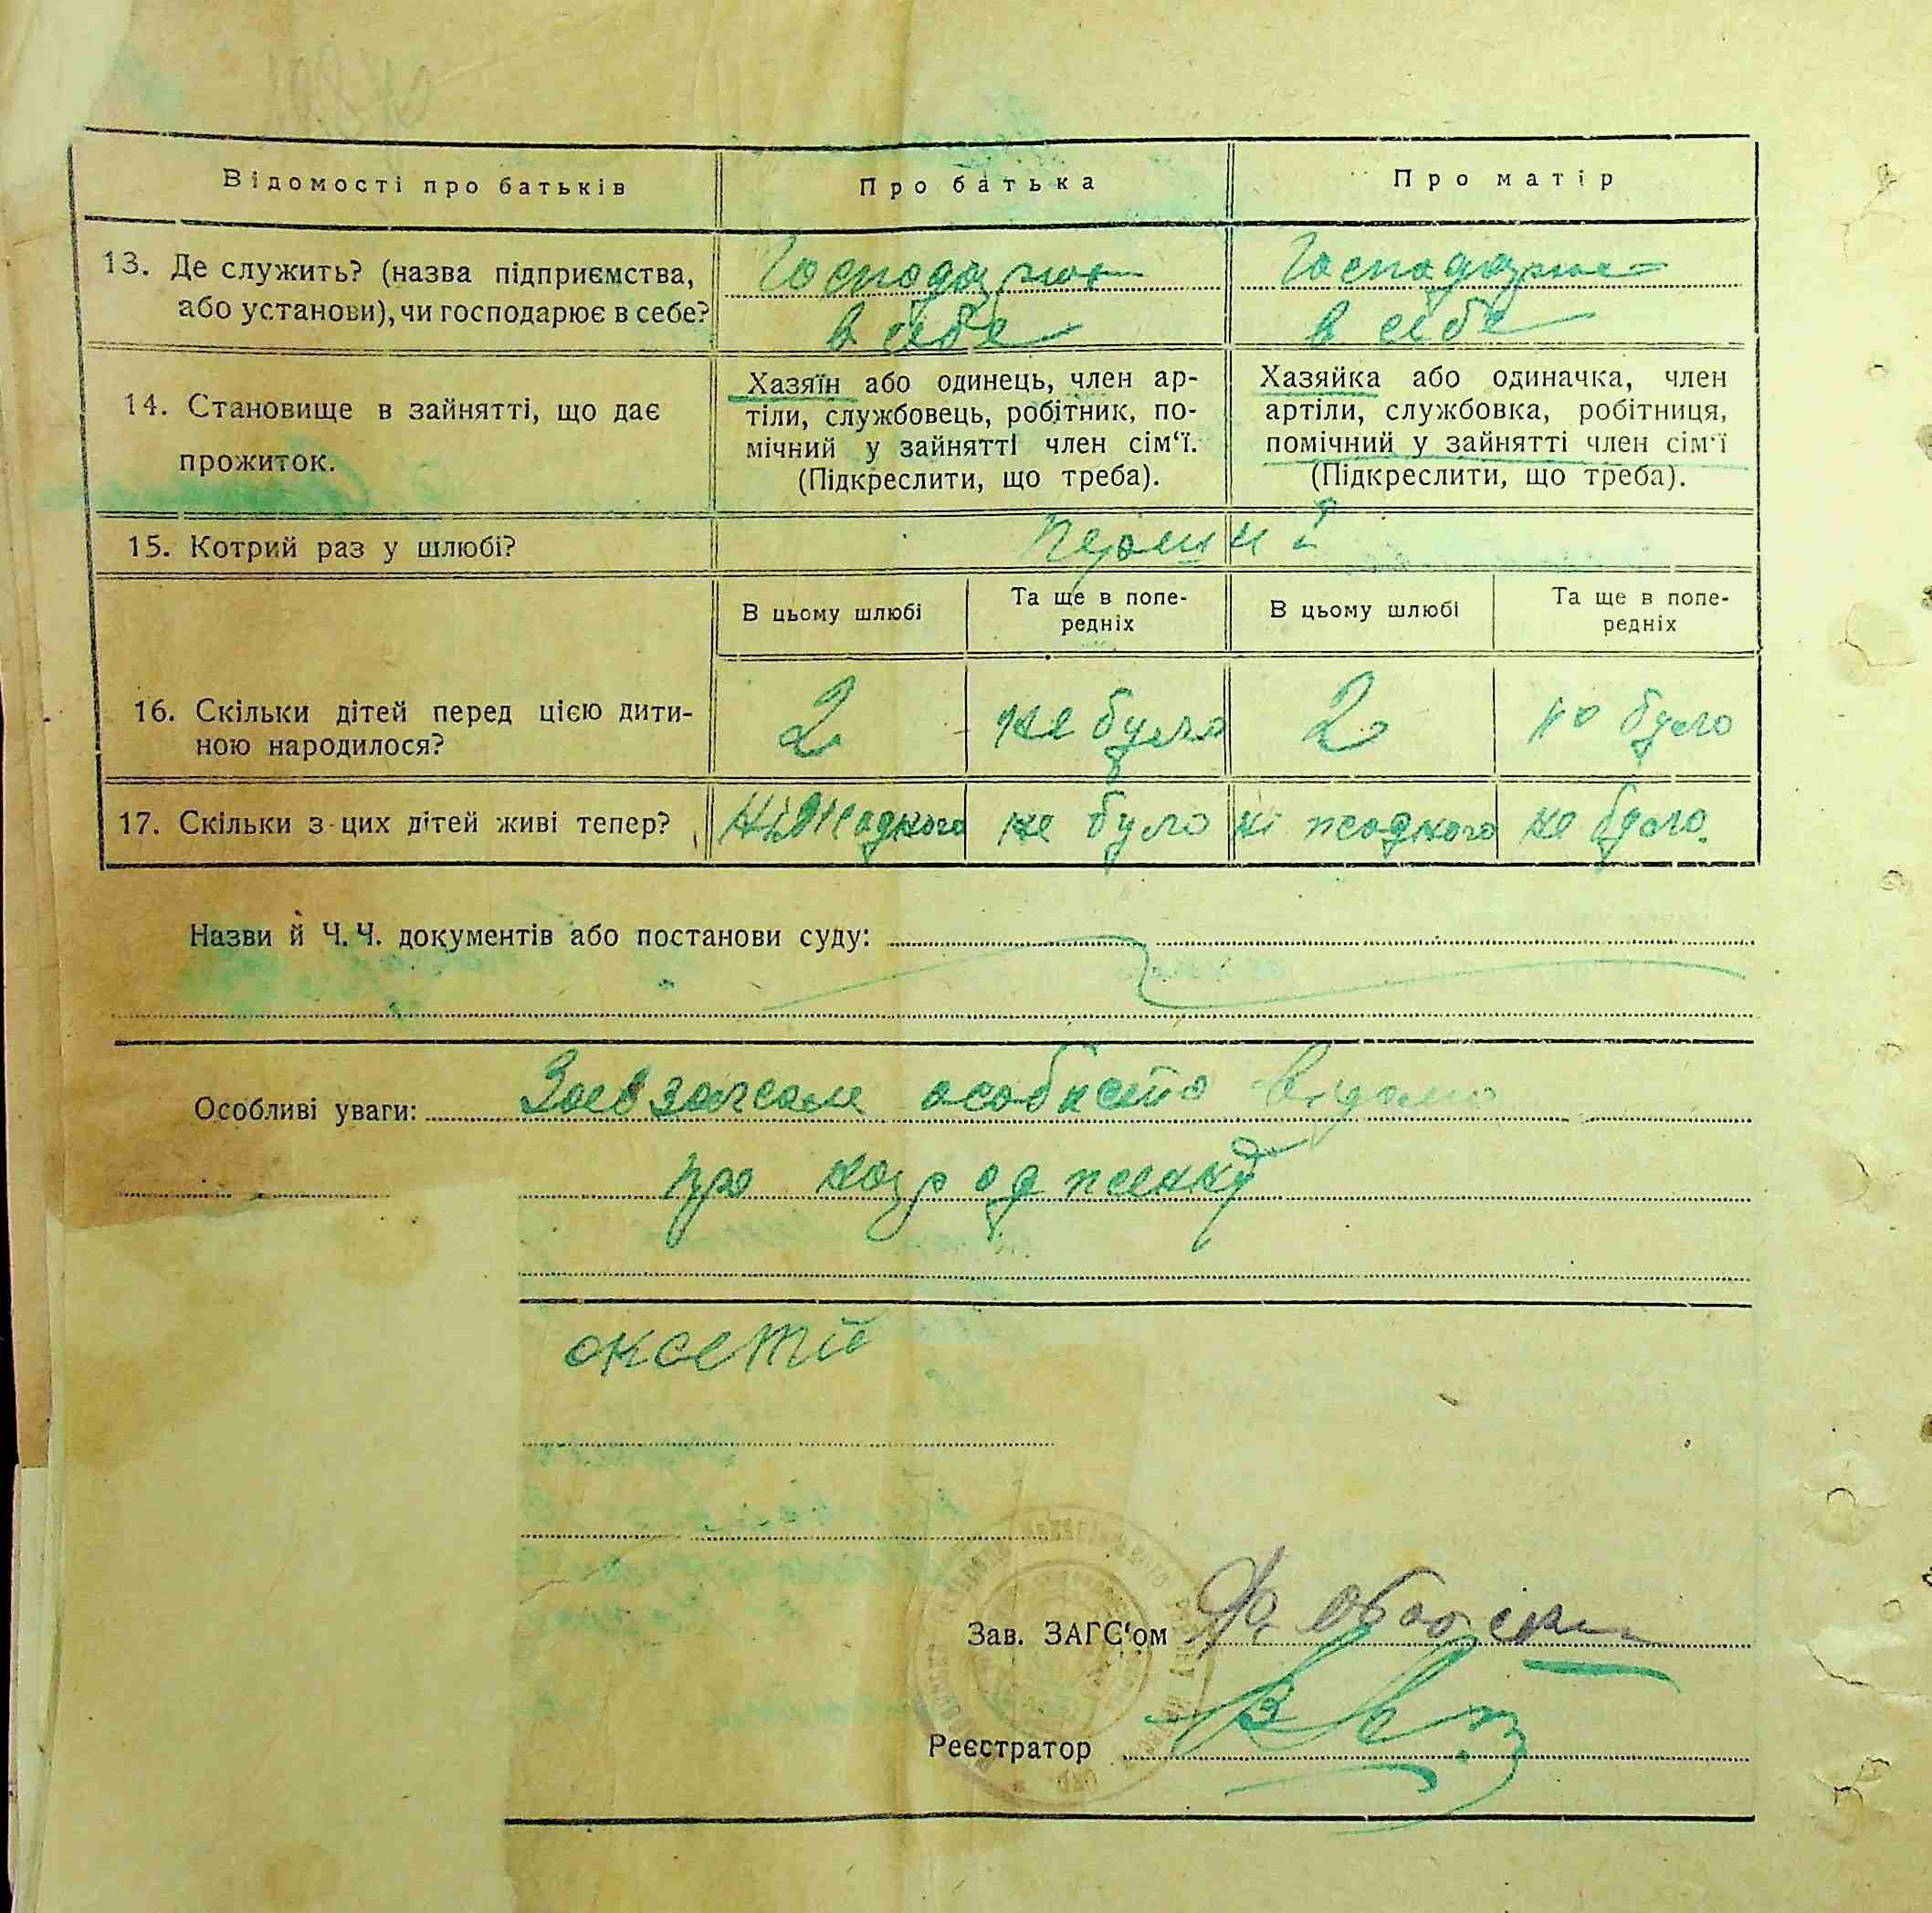 Відомості про батьків
Про батька
Про матір
13. Де служить? (назва підприємства,
або установи), чи господарює в себе?
Господарює
в себе
Господарює
в себе
14. Становище в зайнятті, що дає
прожиток.
Хазяїн або одинець, член ар-
тіли, службовець, робітник, по-
мічний у зайнятті член сім‘ї.
(Підкреслити, що треба).
Хазяйка або одиначка, член
артіли, службовка, робітниця,
помічний у зайнятті член сім‘ї
(Підкреслити, що треба).
15. Котрий раз у шлюбі?
перший
В цьому шлюбі
Та ще в попе-
редніх
В цьому шлюбі
Та ще в попе-
редніх
16. Скільки дітей перед цією дити-
ною народилося?
2
не було
2
не було
17. Скільки з цих дітей живі тепер?
ні жодного
не було
ні жодного
не було.
Назви й Ч. Ч. документів або постанови суду:
Особливі уваги:
особисто відомо
про народження
Зав. ЗАГС‘ом
Реєстратор